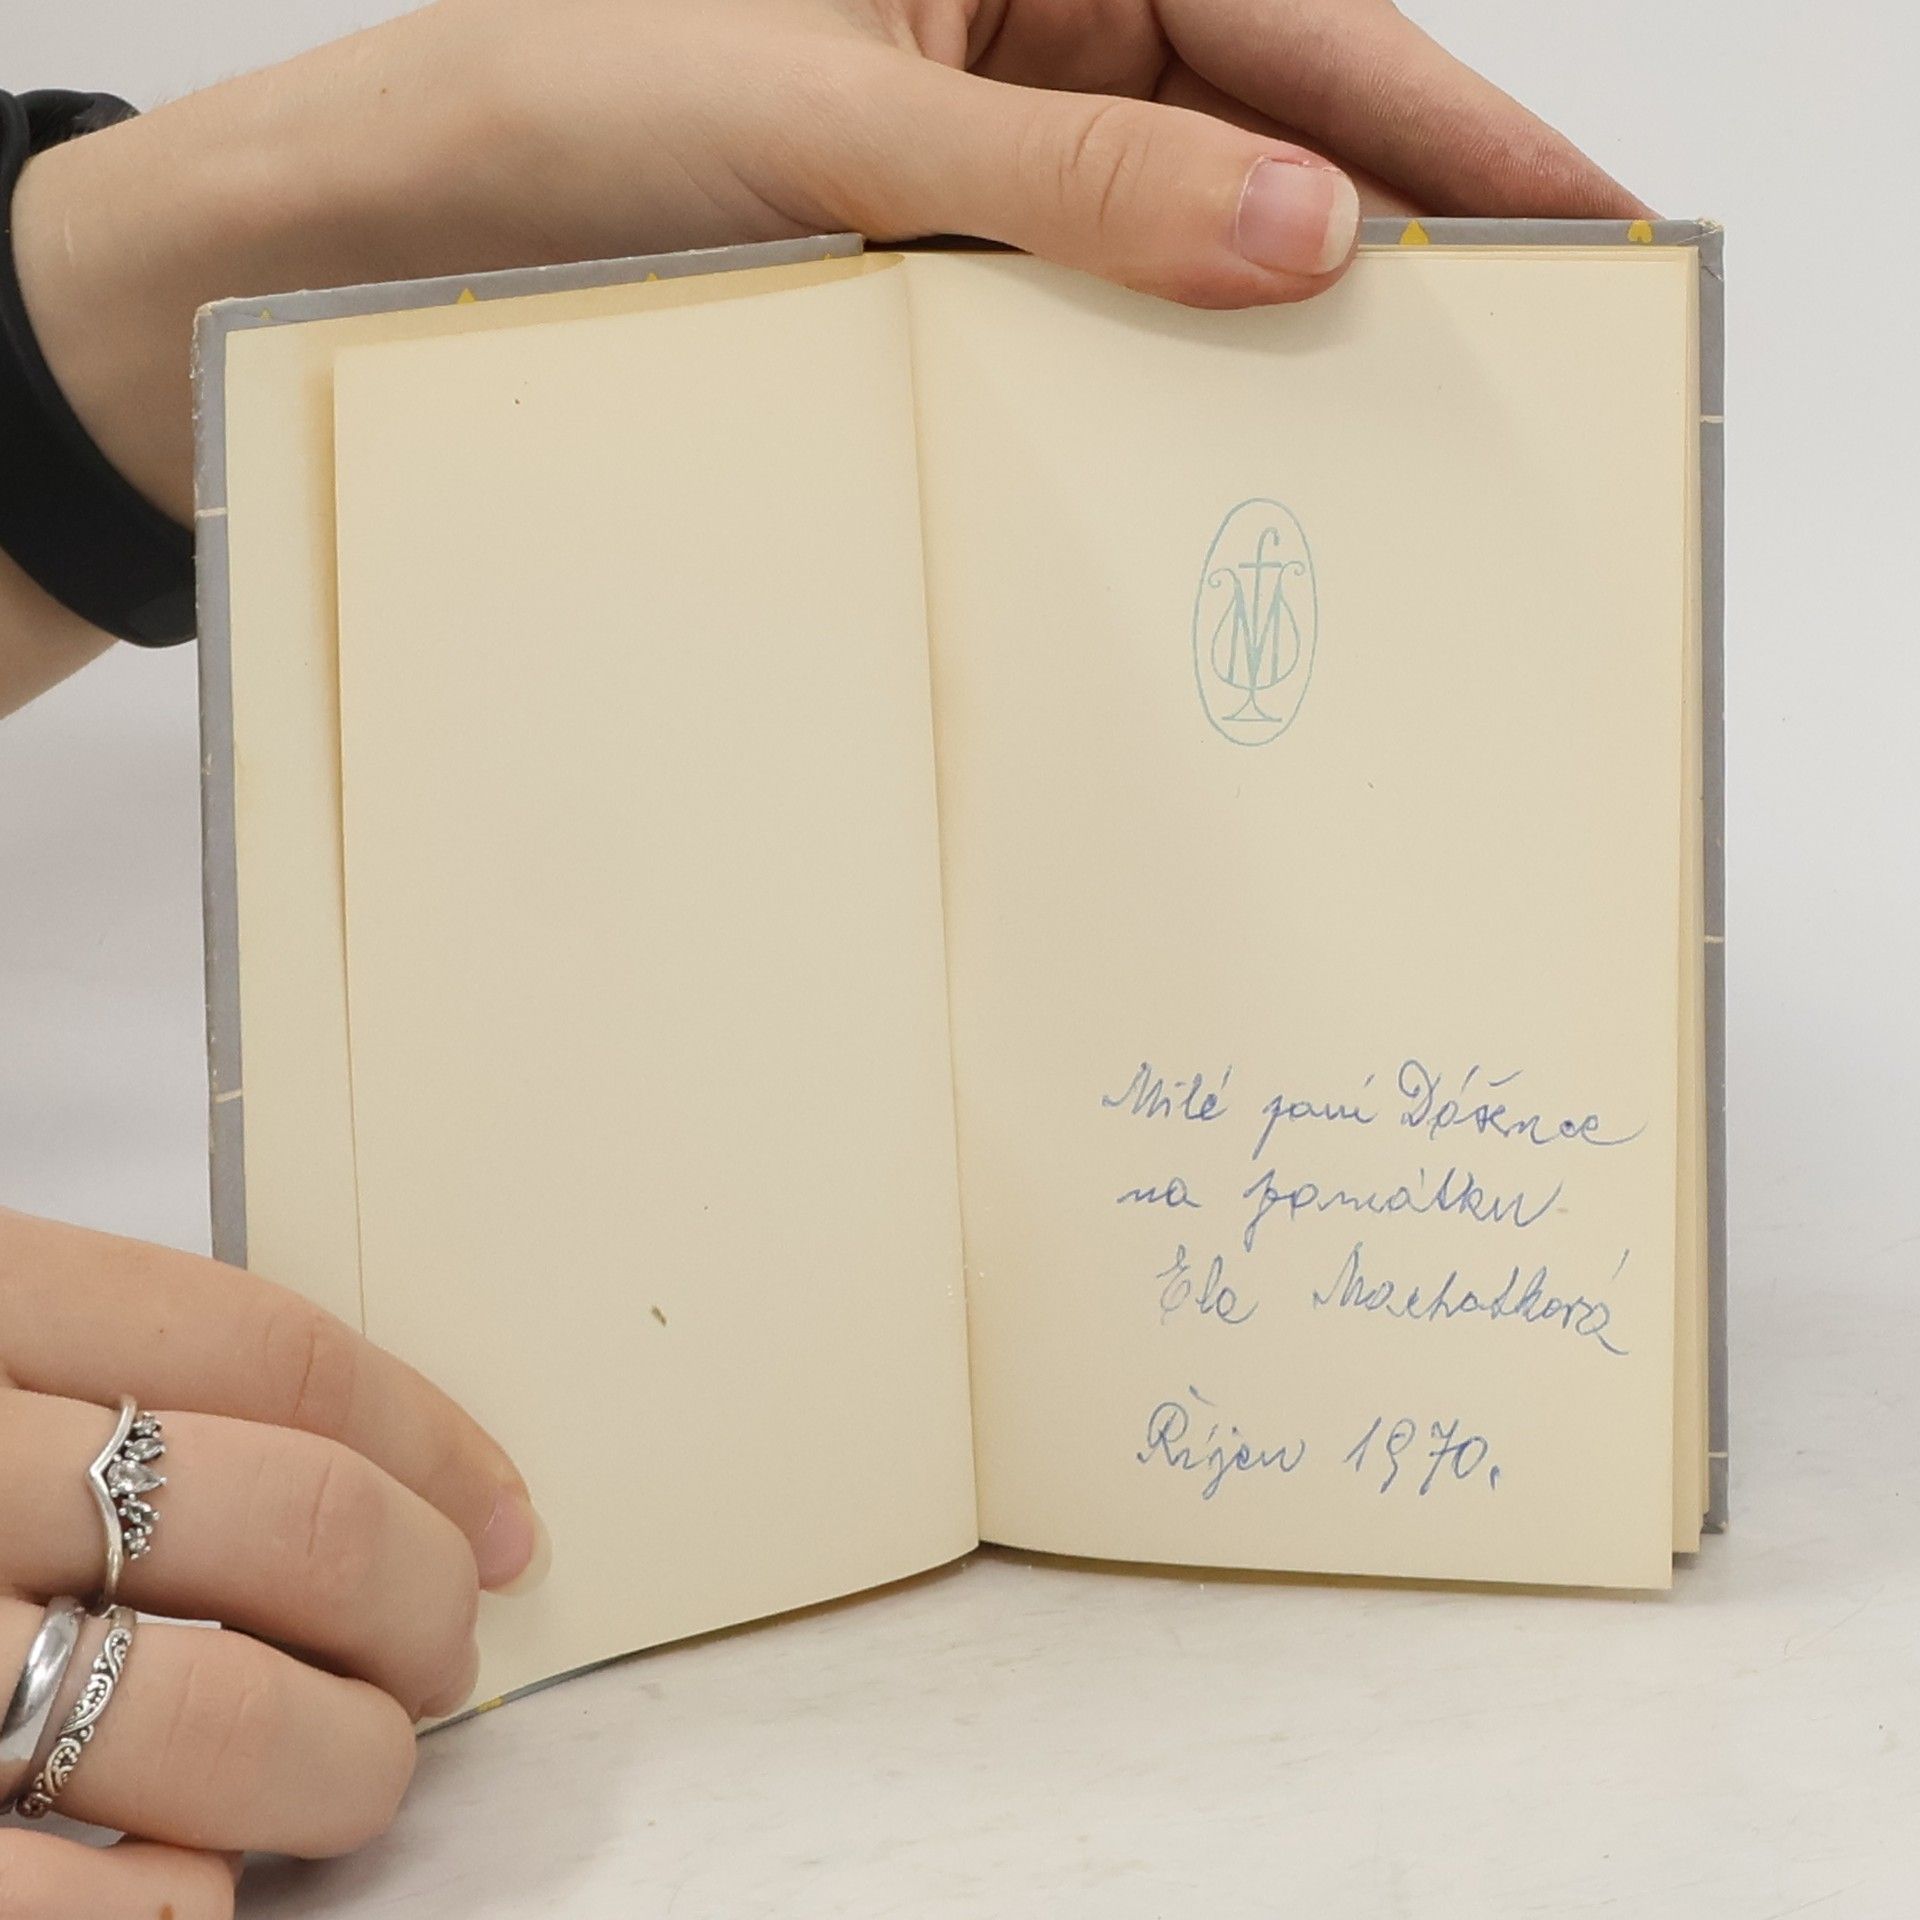 fM
Milé paní Dášence
na památku
Ela Machatková
Říjen 1970.